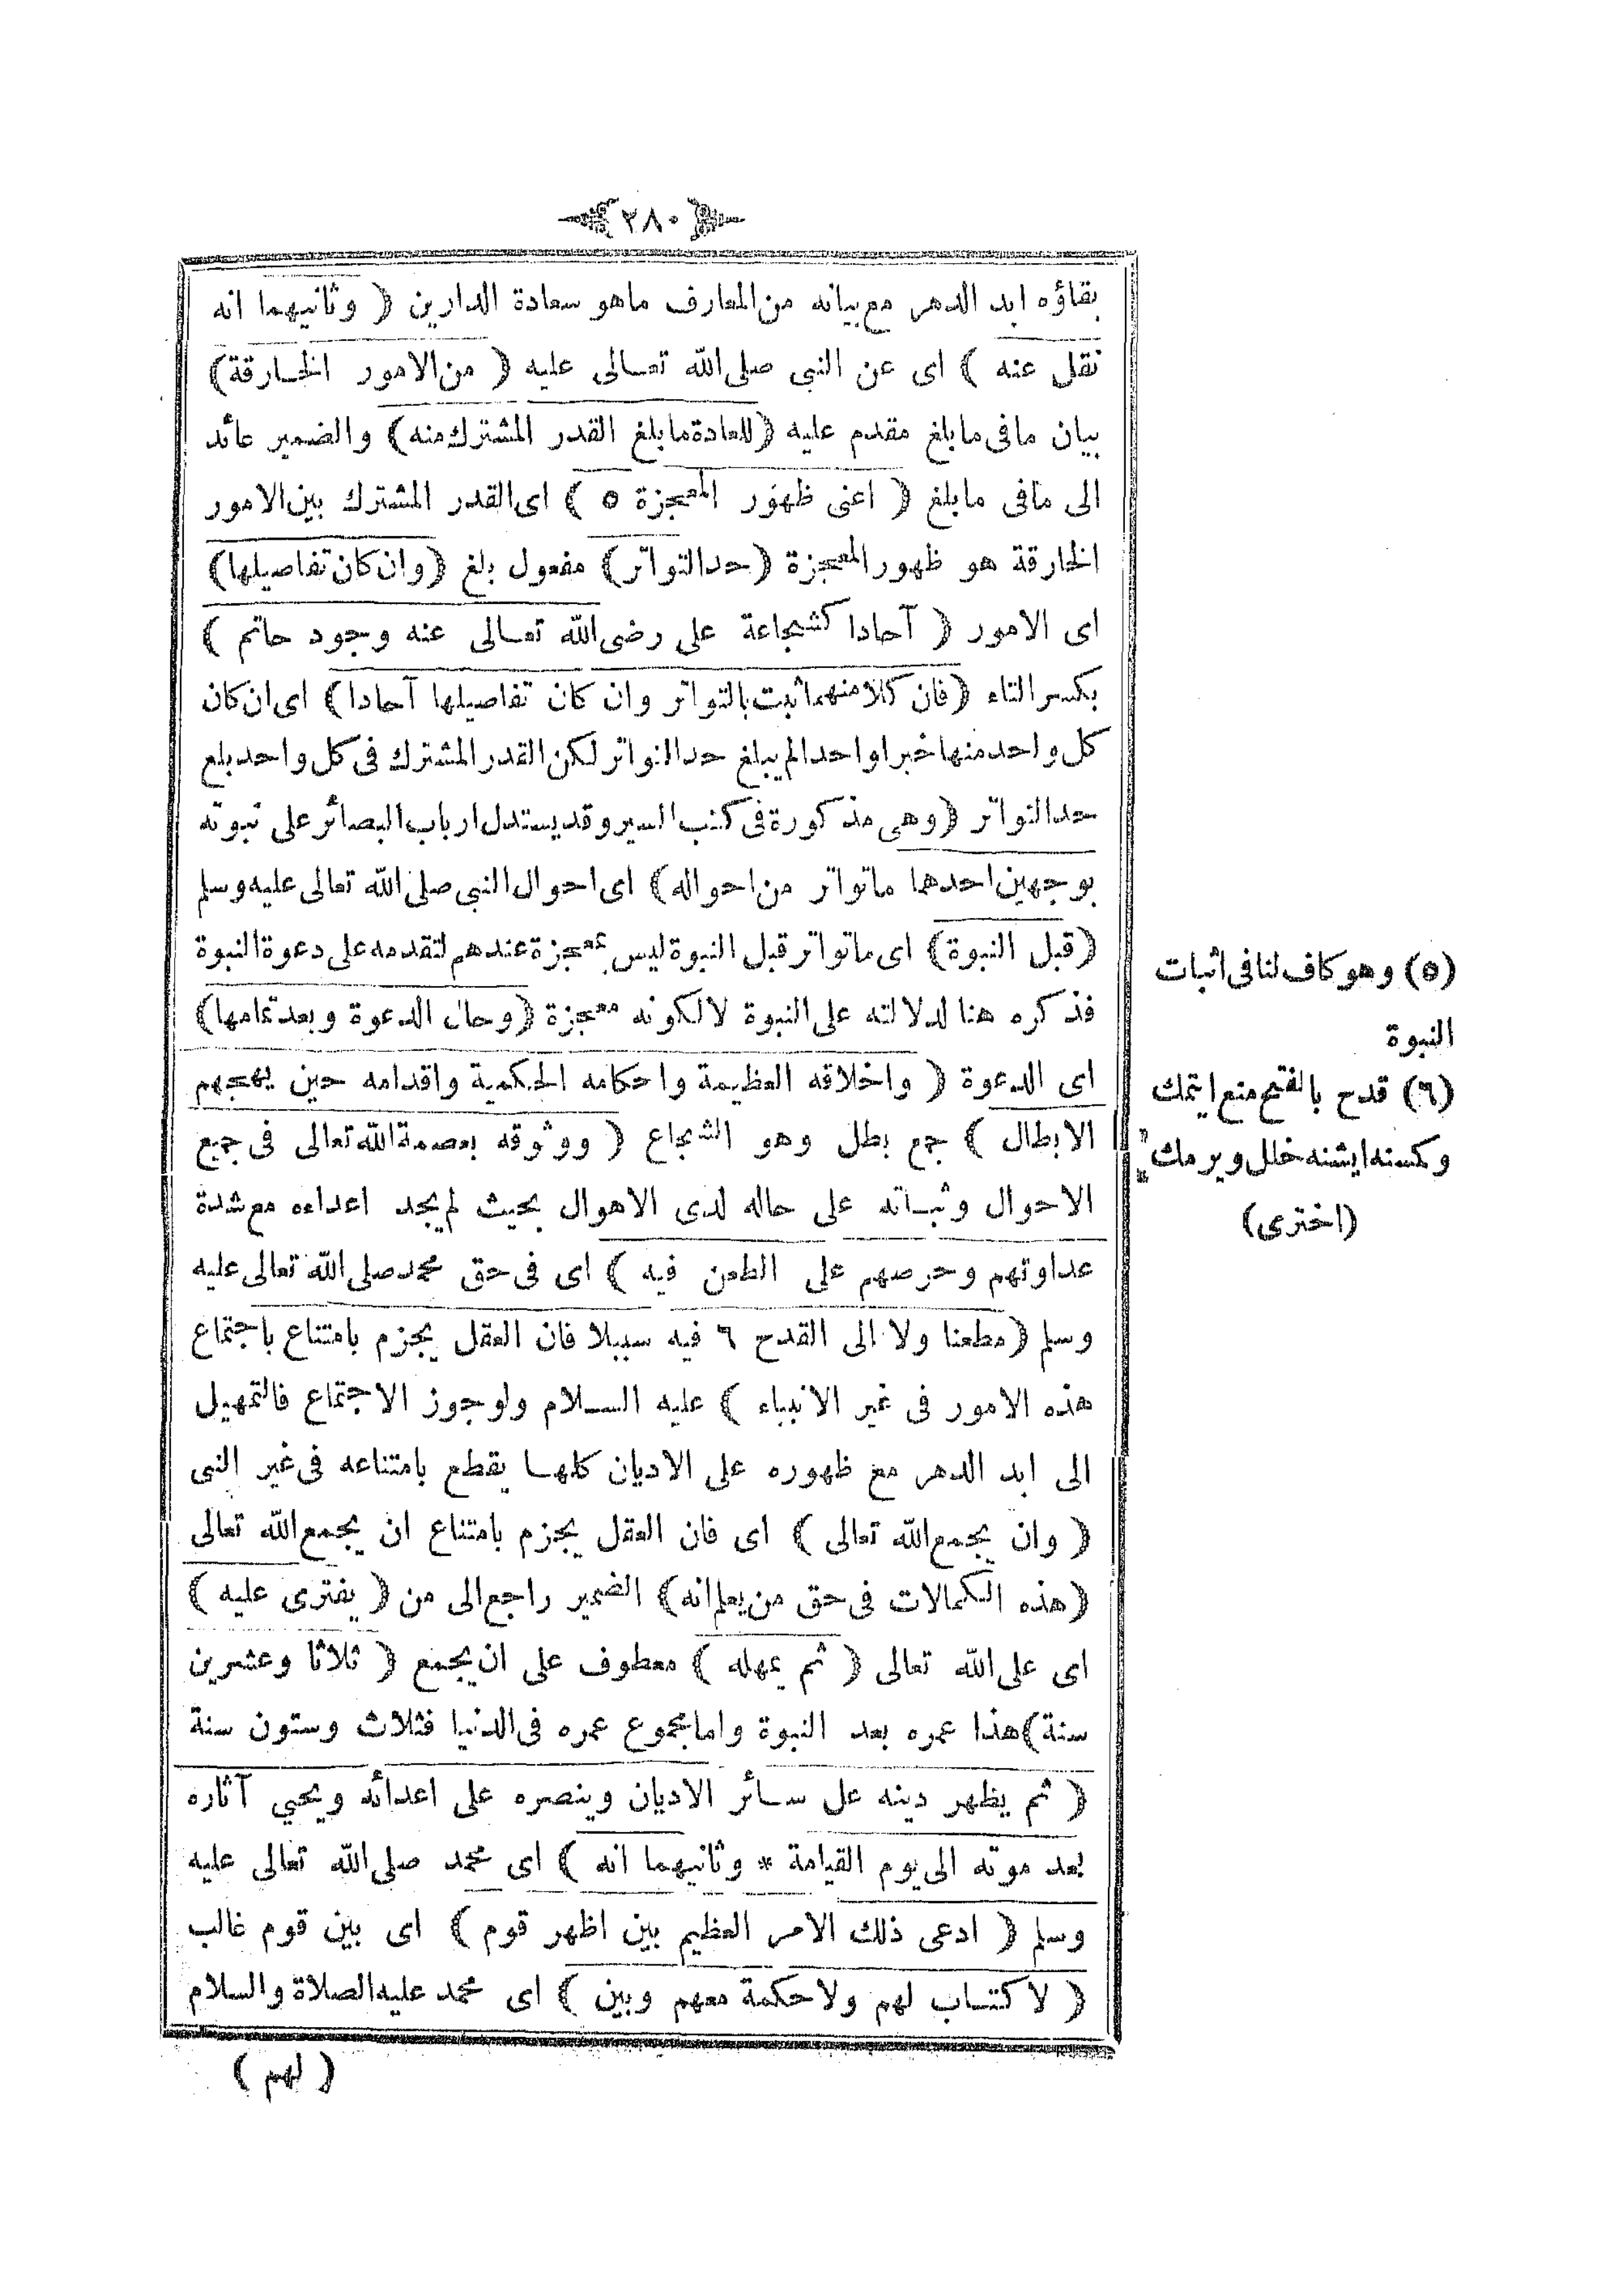 ٢٨٠
بقاؤه ابد الدهر مع بيانه من المعارف ماهو سعادة الدارين ( وثانيهما انه
نقل عنه ) اى عن النبى صلى الله تعالى عليه ( من الامور الخارقة )
بيان مافى مابلغ مقدم عليه ( للعادة مابلغ القدر المشترك منه ) والضمير عائد
الى مافى مابلغ ( اعنى ظهور المعجزة ٥ ) اى القدر المشترك بين الامور
الخارقة هو ظهور المعجزة ( حد التواتر ) مفعول بلغ ( وان كان تفاصيلها )
اى الامور ( آحادا كشجاعة على رضى الله تعالى عنه وجود حاتم )
بكسر التاء ( فان كلا منهما ثبت بالتواتر وان كان تفاصيلها آحادا ) اى ان كان
كل واحد منها خبرا واحدا لم يبلغ حد التواتر لكن القدر المشترك فى كل واحد بلغ
حد التواتر ( وهى مذكورة فى كتب السير وقد يستدل ارباب البصائر على نبوته
بوجهين احدهما ماتواتر من احواله ) اى احوال النبى صلى الله تعالى عليه وسلم
( قبل النبوة ) اى ماتواتر قبل النبوة ليس بمعجزة عندهم لتقدمه على دعوة النبوة
فذكره هنا لدلالته على النبوة لالكونه معجزة ( وحال الدعوة وبعد تمامها )
اى الدعوة ( واخلاقه العظيمة واحكامه الحكمية واقدامه حين يهجهم
الابطال ) جمع بطل وهو الشجاع ( ووثوقه بعصمة الله تعالى فى جميع
الاحوال وثباته على حاله لدى الاهوال بحيث لم يجد اعداءه مع شدة
عداوتهم وحرصهم على الطعن فيه ) اى فى حق محمد صلى الله تعالى عليه
وسلم ( مطعنا ولا الى القدح ٦ فيه سبيلا فان العقل يجزم بامتناع باجتماع
هذه الامور فى غير الانبياء ) عليه السلام ولوجوز الاجتماع فالتمهيل
الى ابد الدهر مع ظهوره على الاديان كلها يقطع بامتناعه فى غير النبى
( وان يجمع الله تعالى ) اى فان العقل يجزم بامتناع ان يجمع الله تعالى
( هذه الكمالات فى حق من يعلم انه ) الضمير راجع الى من ( يفترى عليه )
اى على الله تعالى ( ثم يمهله ) معطوف على ان يجمع ( ثلاثا وعشرين
سنة ) هذا عمره بعد النبوة واما مجموع عمره فى الدنيا فثلاث وستون سنة
( ثم يظهر دينه عل سائر الاديان وينصره على اعدائه ويحيي آثاره
بعد موته الى يوم القيامة * وثانيهما انه ) اى محمد صلى الله تعالى عليه
وسلم ( ادعى ذلك الامر العظيم بين اظهر قوم ) اى بين قوم غالب
( لاكتاب لهم ولاحكمة معهم وبين ) اى محمد عليه الصلاة والسلام
( لهم )
(٥) وهو كاف لنا فى اثبات
النبوة
(٦) قدح بالفتح منع ايتمك
وكمسنه ايشنه خلل ويرمك
(اخترى)